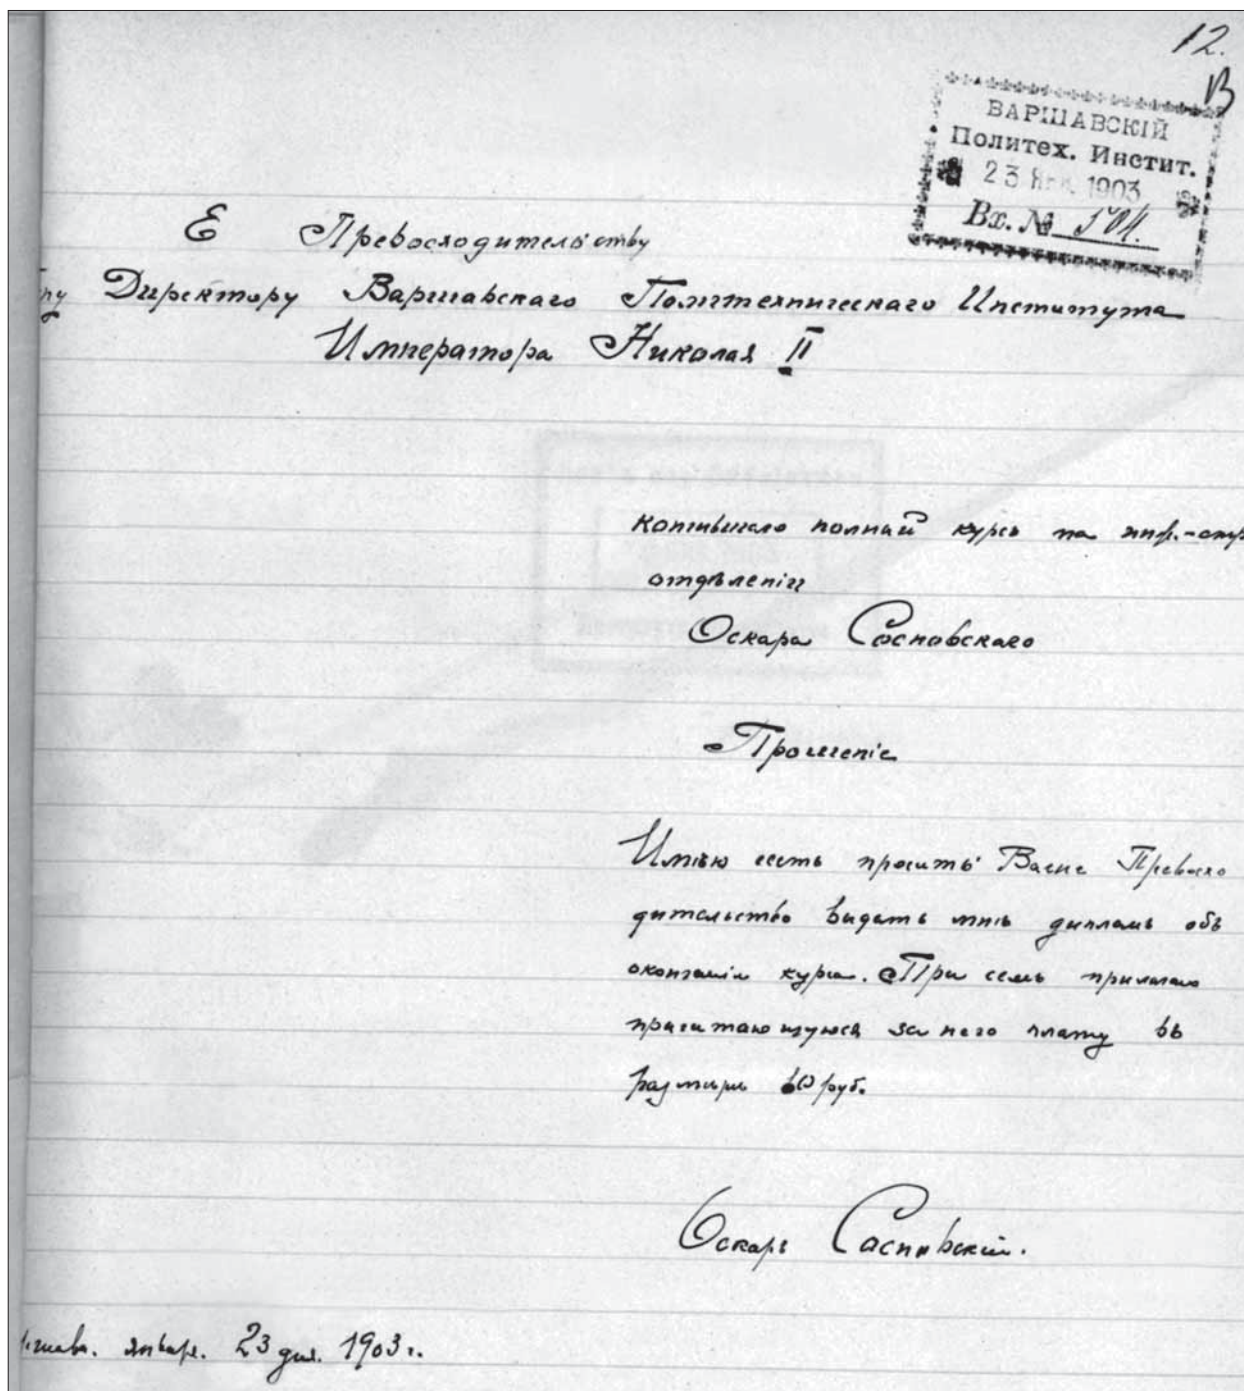 12.
В
ВАРШАВСКІЙ
Политех. Инстит.
23 Янв. 1903
Вх. № 504.
Е Превосходительству
Директору Варшавскаго Политехническаго Института
Императора Николая II
кончившаго полный курсъ на инж.-стр
отдѣленіи
Оскара Сосновскаго
Прошеніе
Имѣю честь просить Ваше Превосхо
дительство выдать мнѣ дипломъ объ
окончаніи курса. При семъ прилагаю
причитающуюся за него плату въ
размѣрѣ руб.
Оскаръ Сосновскій.
января. 23 дня. 1903 г.